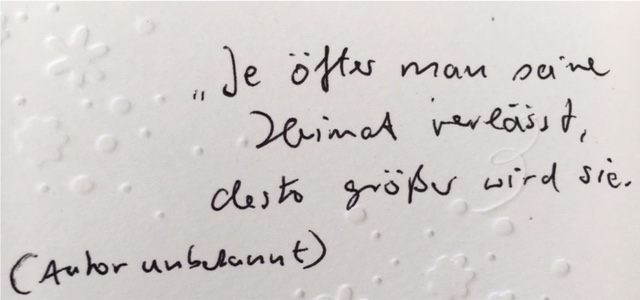 „Je öfter man seine
Heimat verlässt,
desto größer wird sie.
(Autor unbekannt)